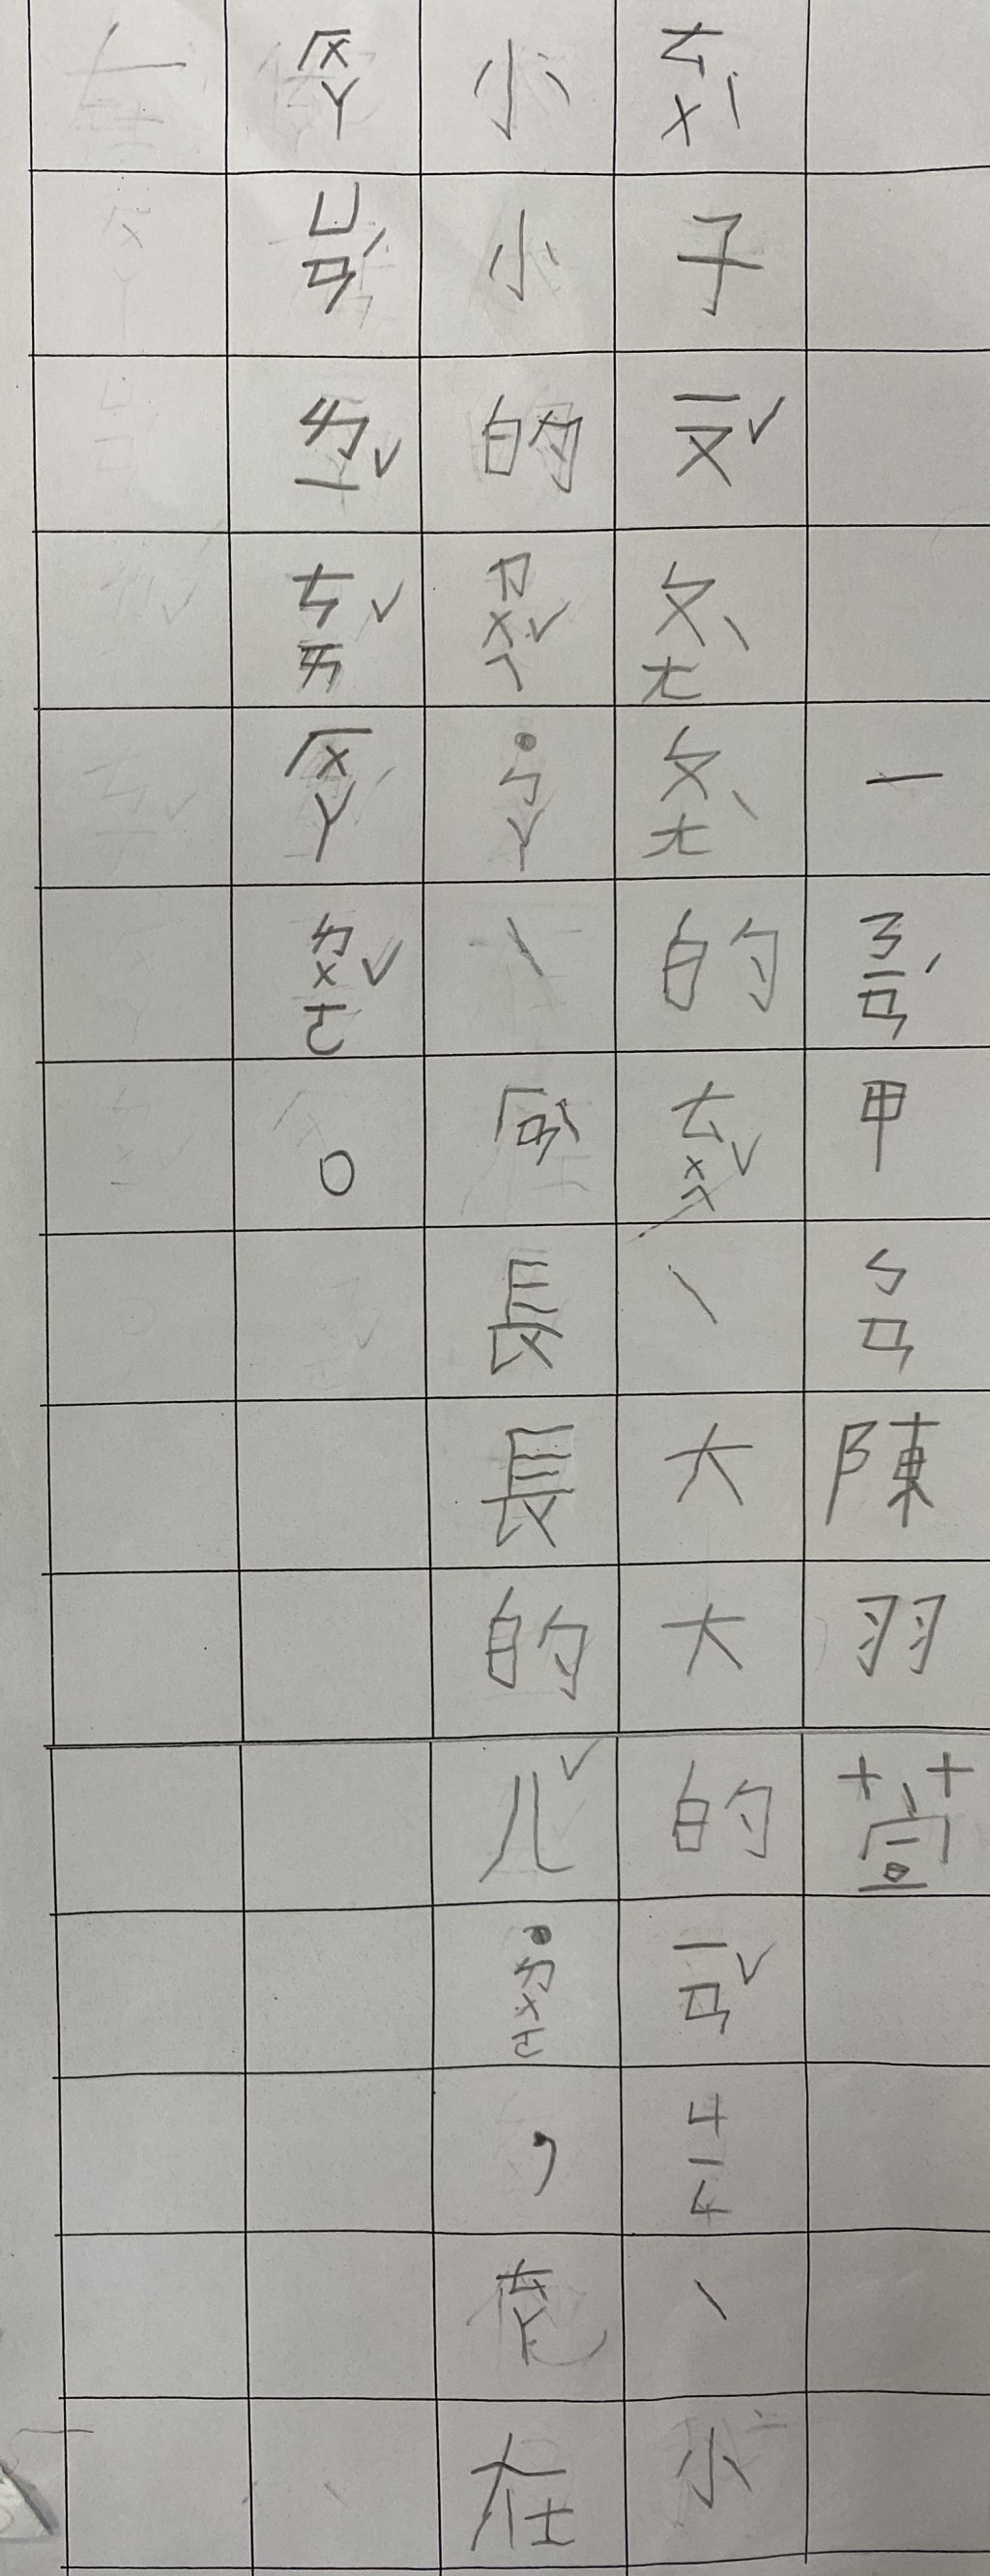 一ㄋㄧㄢˊ甲ㄅㄢ陳羽萱
ㄊㄨˋ子ㄧㄡˇㄆㄤˋㄆㄤˋ的ㄊㄨㄟˇ、大大的ㄧㄢˇㄐㄧㄥ、小
小小的ㄗㄨㄟˇ˙ㄅㄚ、ㄏㄢˋ長長的ㄦˇ˙ㄉㄨㄛ，ㄊㄚ在
ㄏㄨㄚㄩㄢˊㄌㄧˇㄘㄞˇㄏㄨㄚㄉㄨㄛˇ。